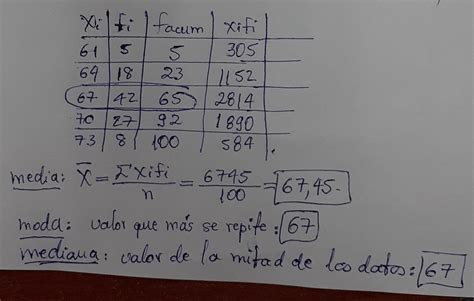 xi fi facum xifi
61 5 5 305
64 18 23 1152
67 42 65 2814
70 27 92 1890
73 8 100 584.
media: X̄ = Σxifi / n = 6745 / 100 = 67,45.
moda: valor que más se repite: 67
mediana: valor de la mitad de los datos: 67